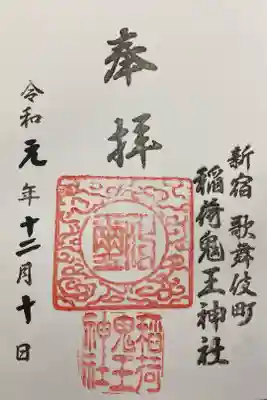 新宿 歌舞伎町
稲荷鬼王神社
奉拝
令和元年十二月十日
稲荷
鬼王
神社